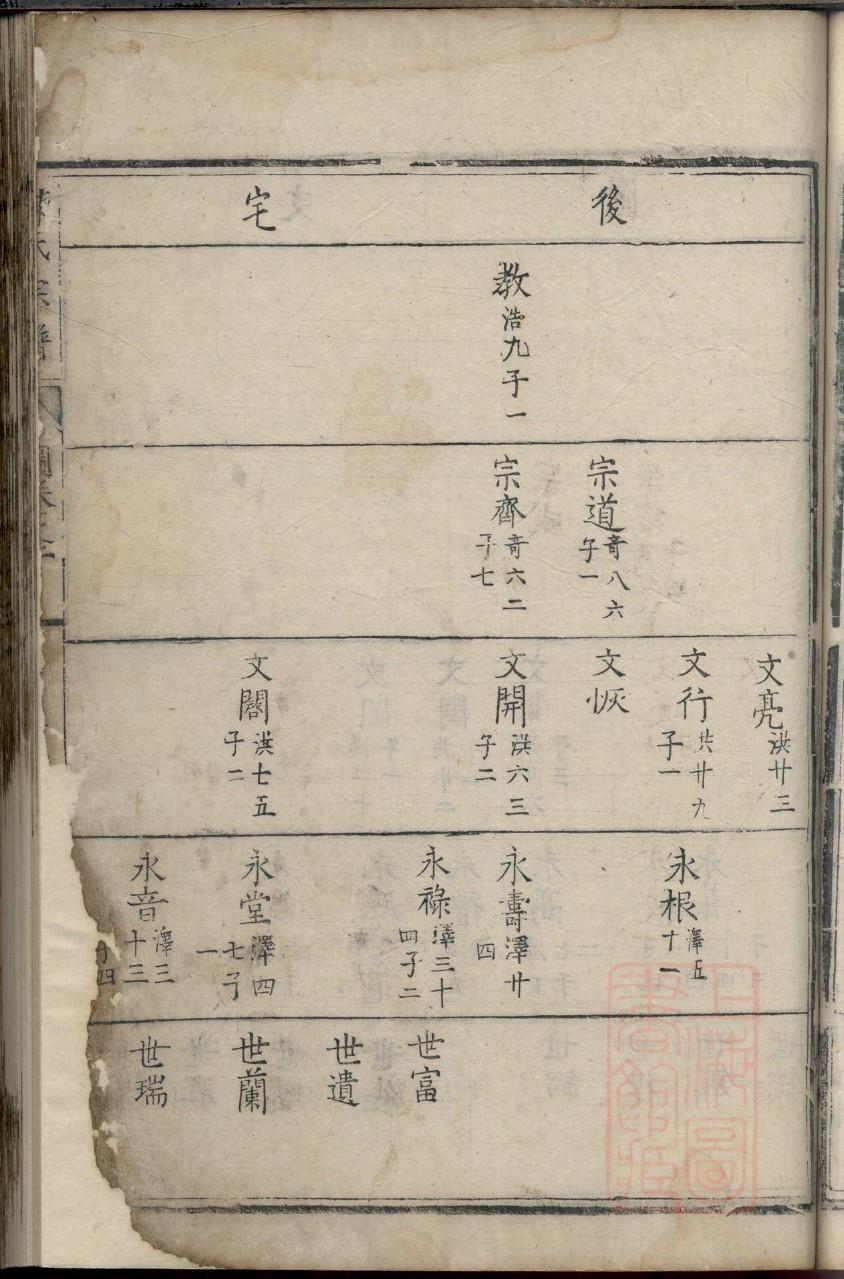 後
宅
教浩九子一
宗道竒八六子一
宗齊竒六二子七
文亮洪廿三
文行共廿九子一
文恢
文開洪六三子二
文閣洪七五子二
永根澤五十一
永壽澤廿四
永祿澤三十四子二
永堂澤四七子一
永音澤三十三
世富
世遺
世蘭
世瑞
氏宗譜